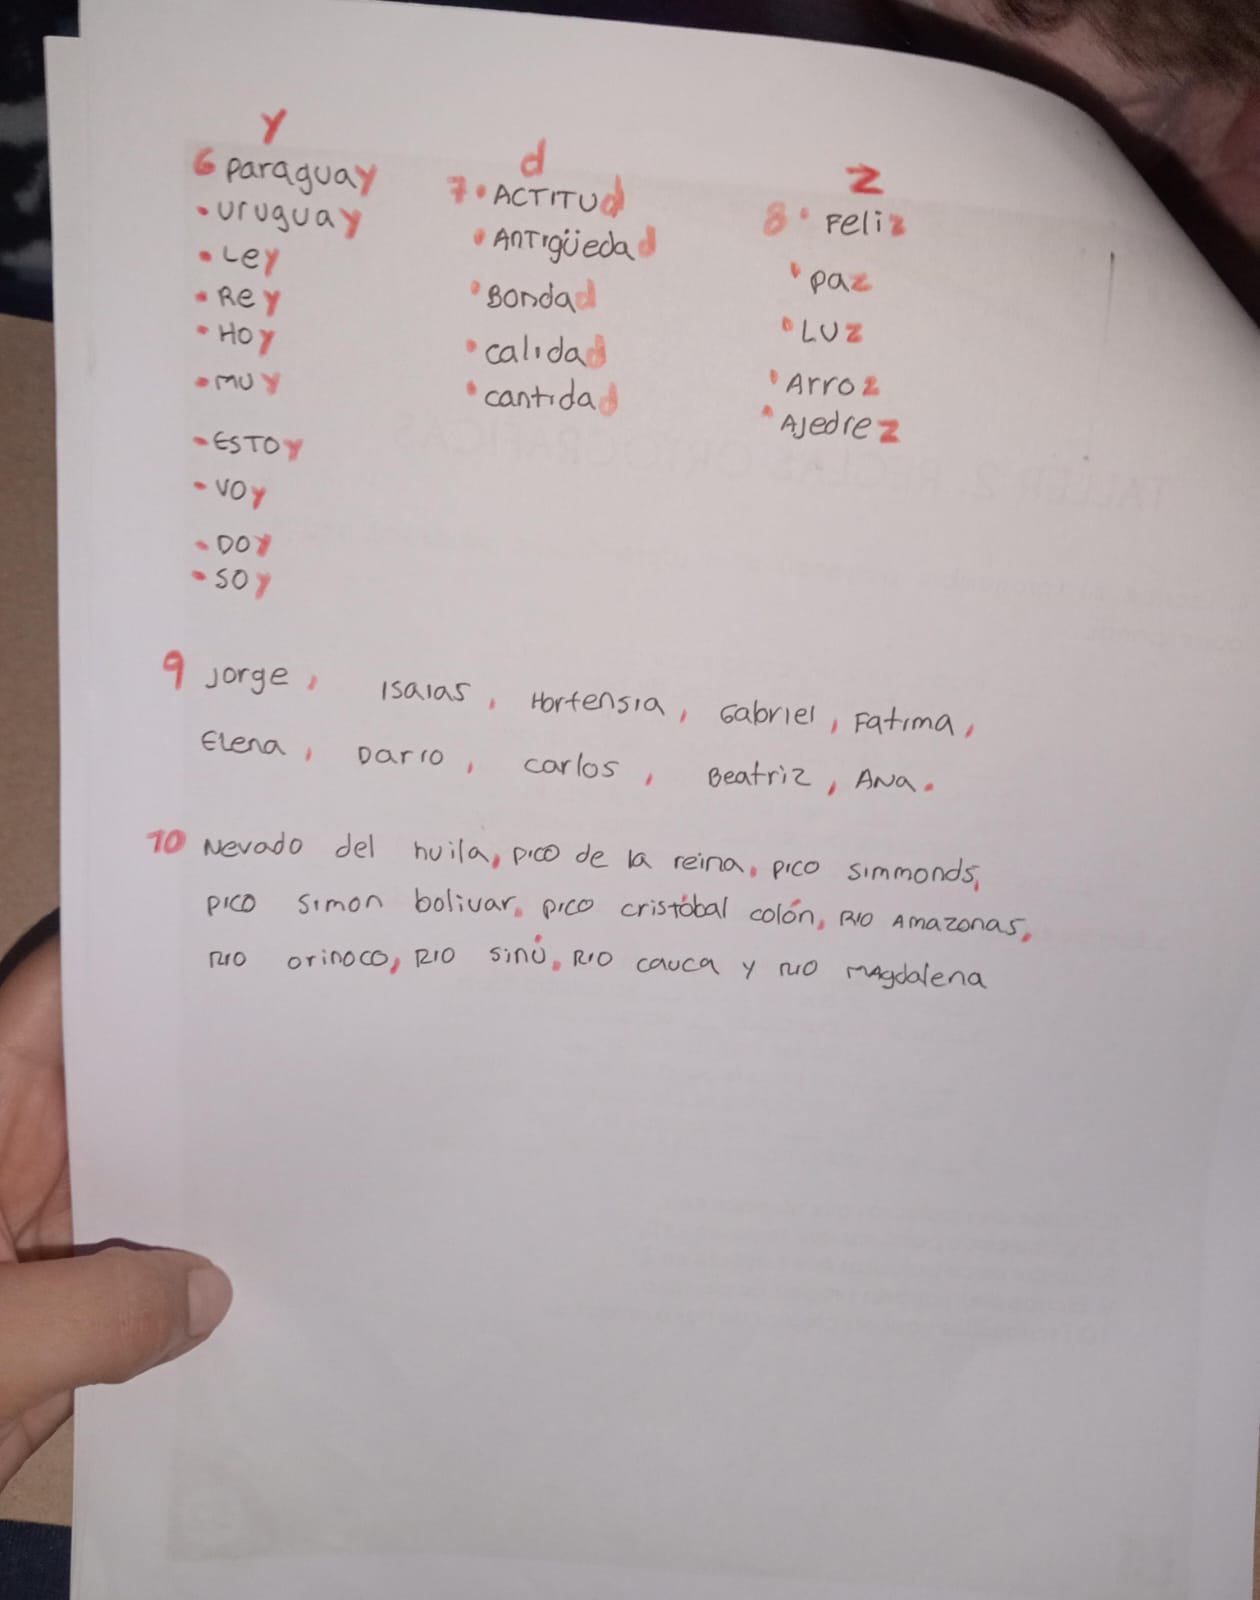 Y
6 Paraguay
• Uruguay
• Ley
• Rey
• HOY
• MUY
- ESTOY
- VOY
- DOY
• SOY
d
7 • ACTITUd
• ANTIgüedad
• Bondad
• calidad
• cantidad
Z
8 • Feliz
• paz
• LUZ
• Arroz
• Ajedrez
9 Jorge, Isaias, Hortensia, Gabriel, Fatima,
Elena, Dario, carlos, Beatriz, Ana.
10 Nevado del huila, pico de la reina, pico simmonds,
pico simon bolivar, pico cristóbal colón, Rio Amazonas,
Rio orinoco, Rio sinú, Rio cauca y rio magdalena
TALLER 2 REGLAS ORTOGRAFICAS